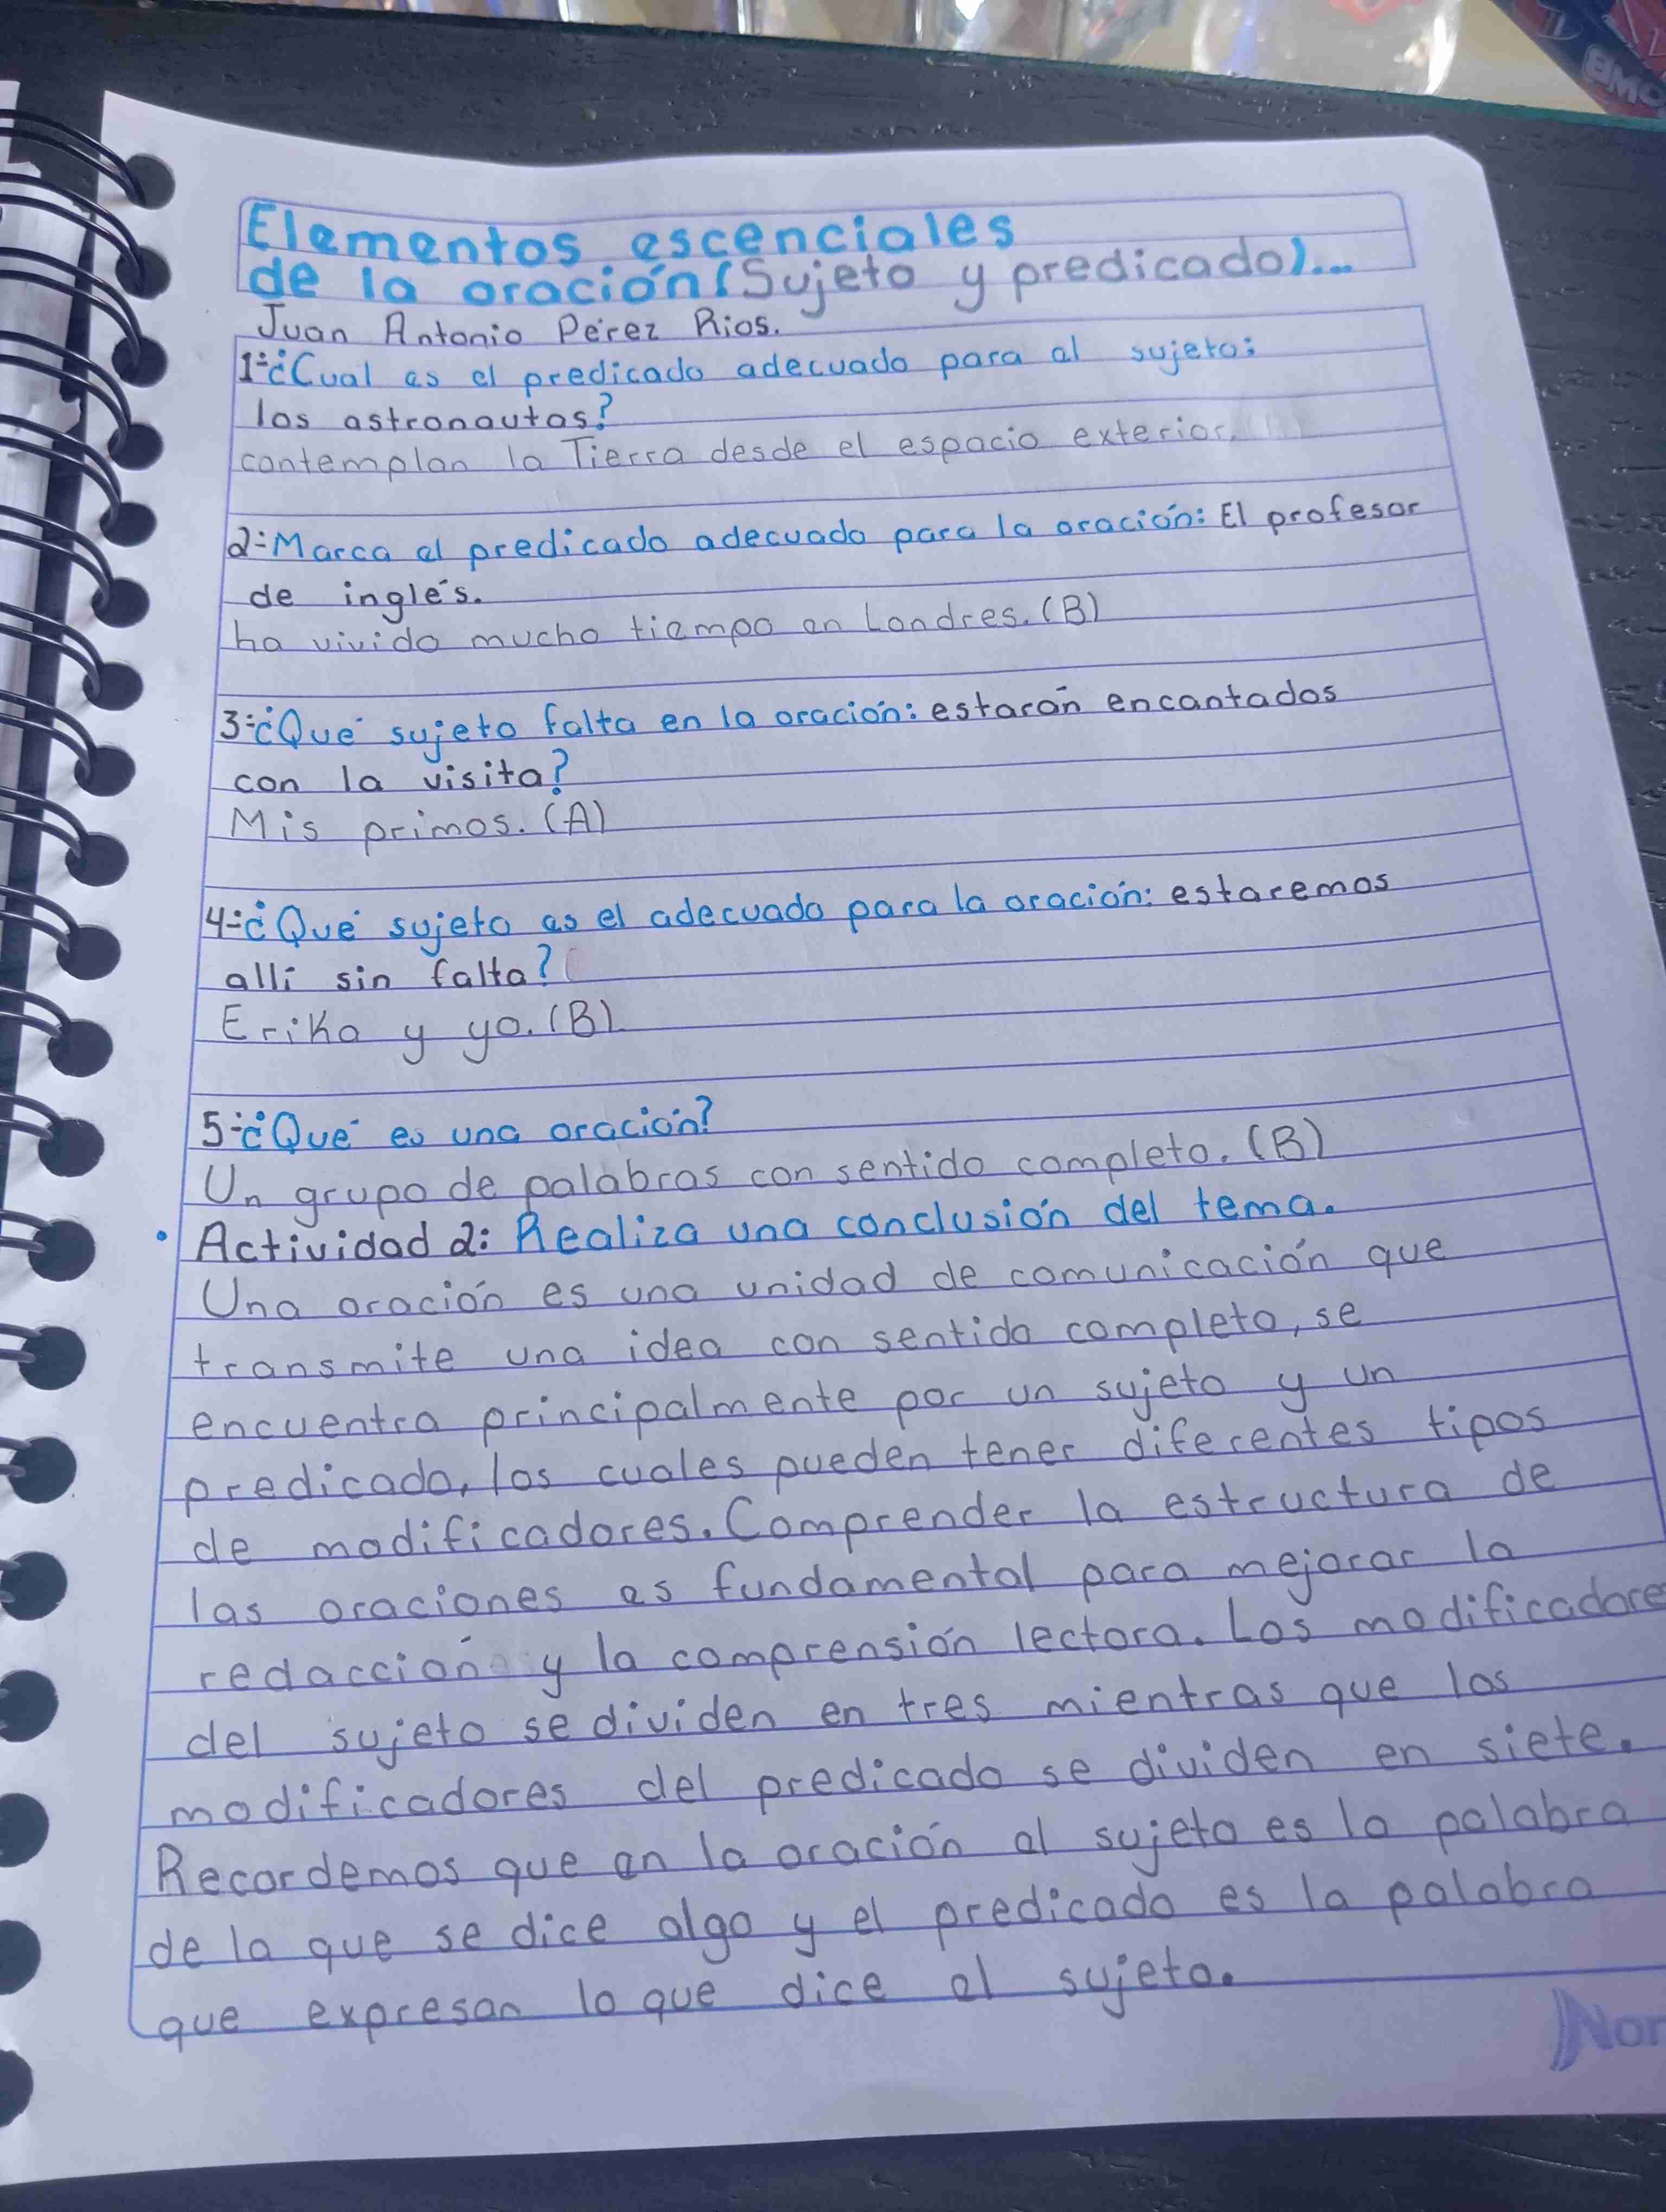 Elementos escenciales
de la oración (Sujeto y predicado)...
Juan Antonio Pérez Rios.
1-¿Cual es el predicado adecuado para el sujeto:
los astronautas?
contemplan la Tierra desde el espacio exterior.
2-Marca el predicado adecuado para la oración: El profesor
de inglés.
ha vivido mucho tiempo en Londres. (B)
3-¿Qué sujeto falta en la oración: estarán encantados
con la visita?
Mis primos. (A)
4-¿Qué sujeto es el adecuado para la oración: estaremos
alli sin falta?
Erika y yo. (B)
5-¿Qué es una oración?
Un grupo de palabras con sentido completo. (B)
• Actividad 2: Realiza una conclusión del tema.
Una oración es una unidad de comunicación que
transmite una idea con sentido completo, se
encuentra principalmente por un sujeto y un
predicado, los cuales pueden tener diferentes tipos
de modificadores. Comprender la estructura de
las oraciones es fundamental para mejorar la
redacción y la comprensión lectora. Los modificadores
del sujeto se dividen en tres mientras que los
modificadores del predicado se dividen en siete.
Recordemos que en la oración el sujeto es la palabra
de la que se dice algo y el predicado es la palabra
que expresan lo que dice el sujeto.
Nor